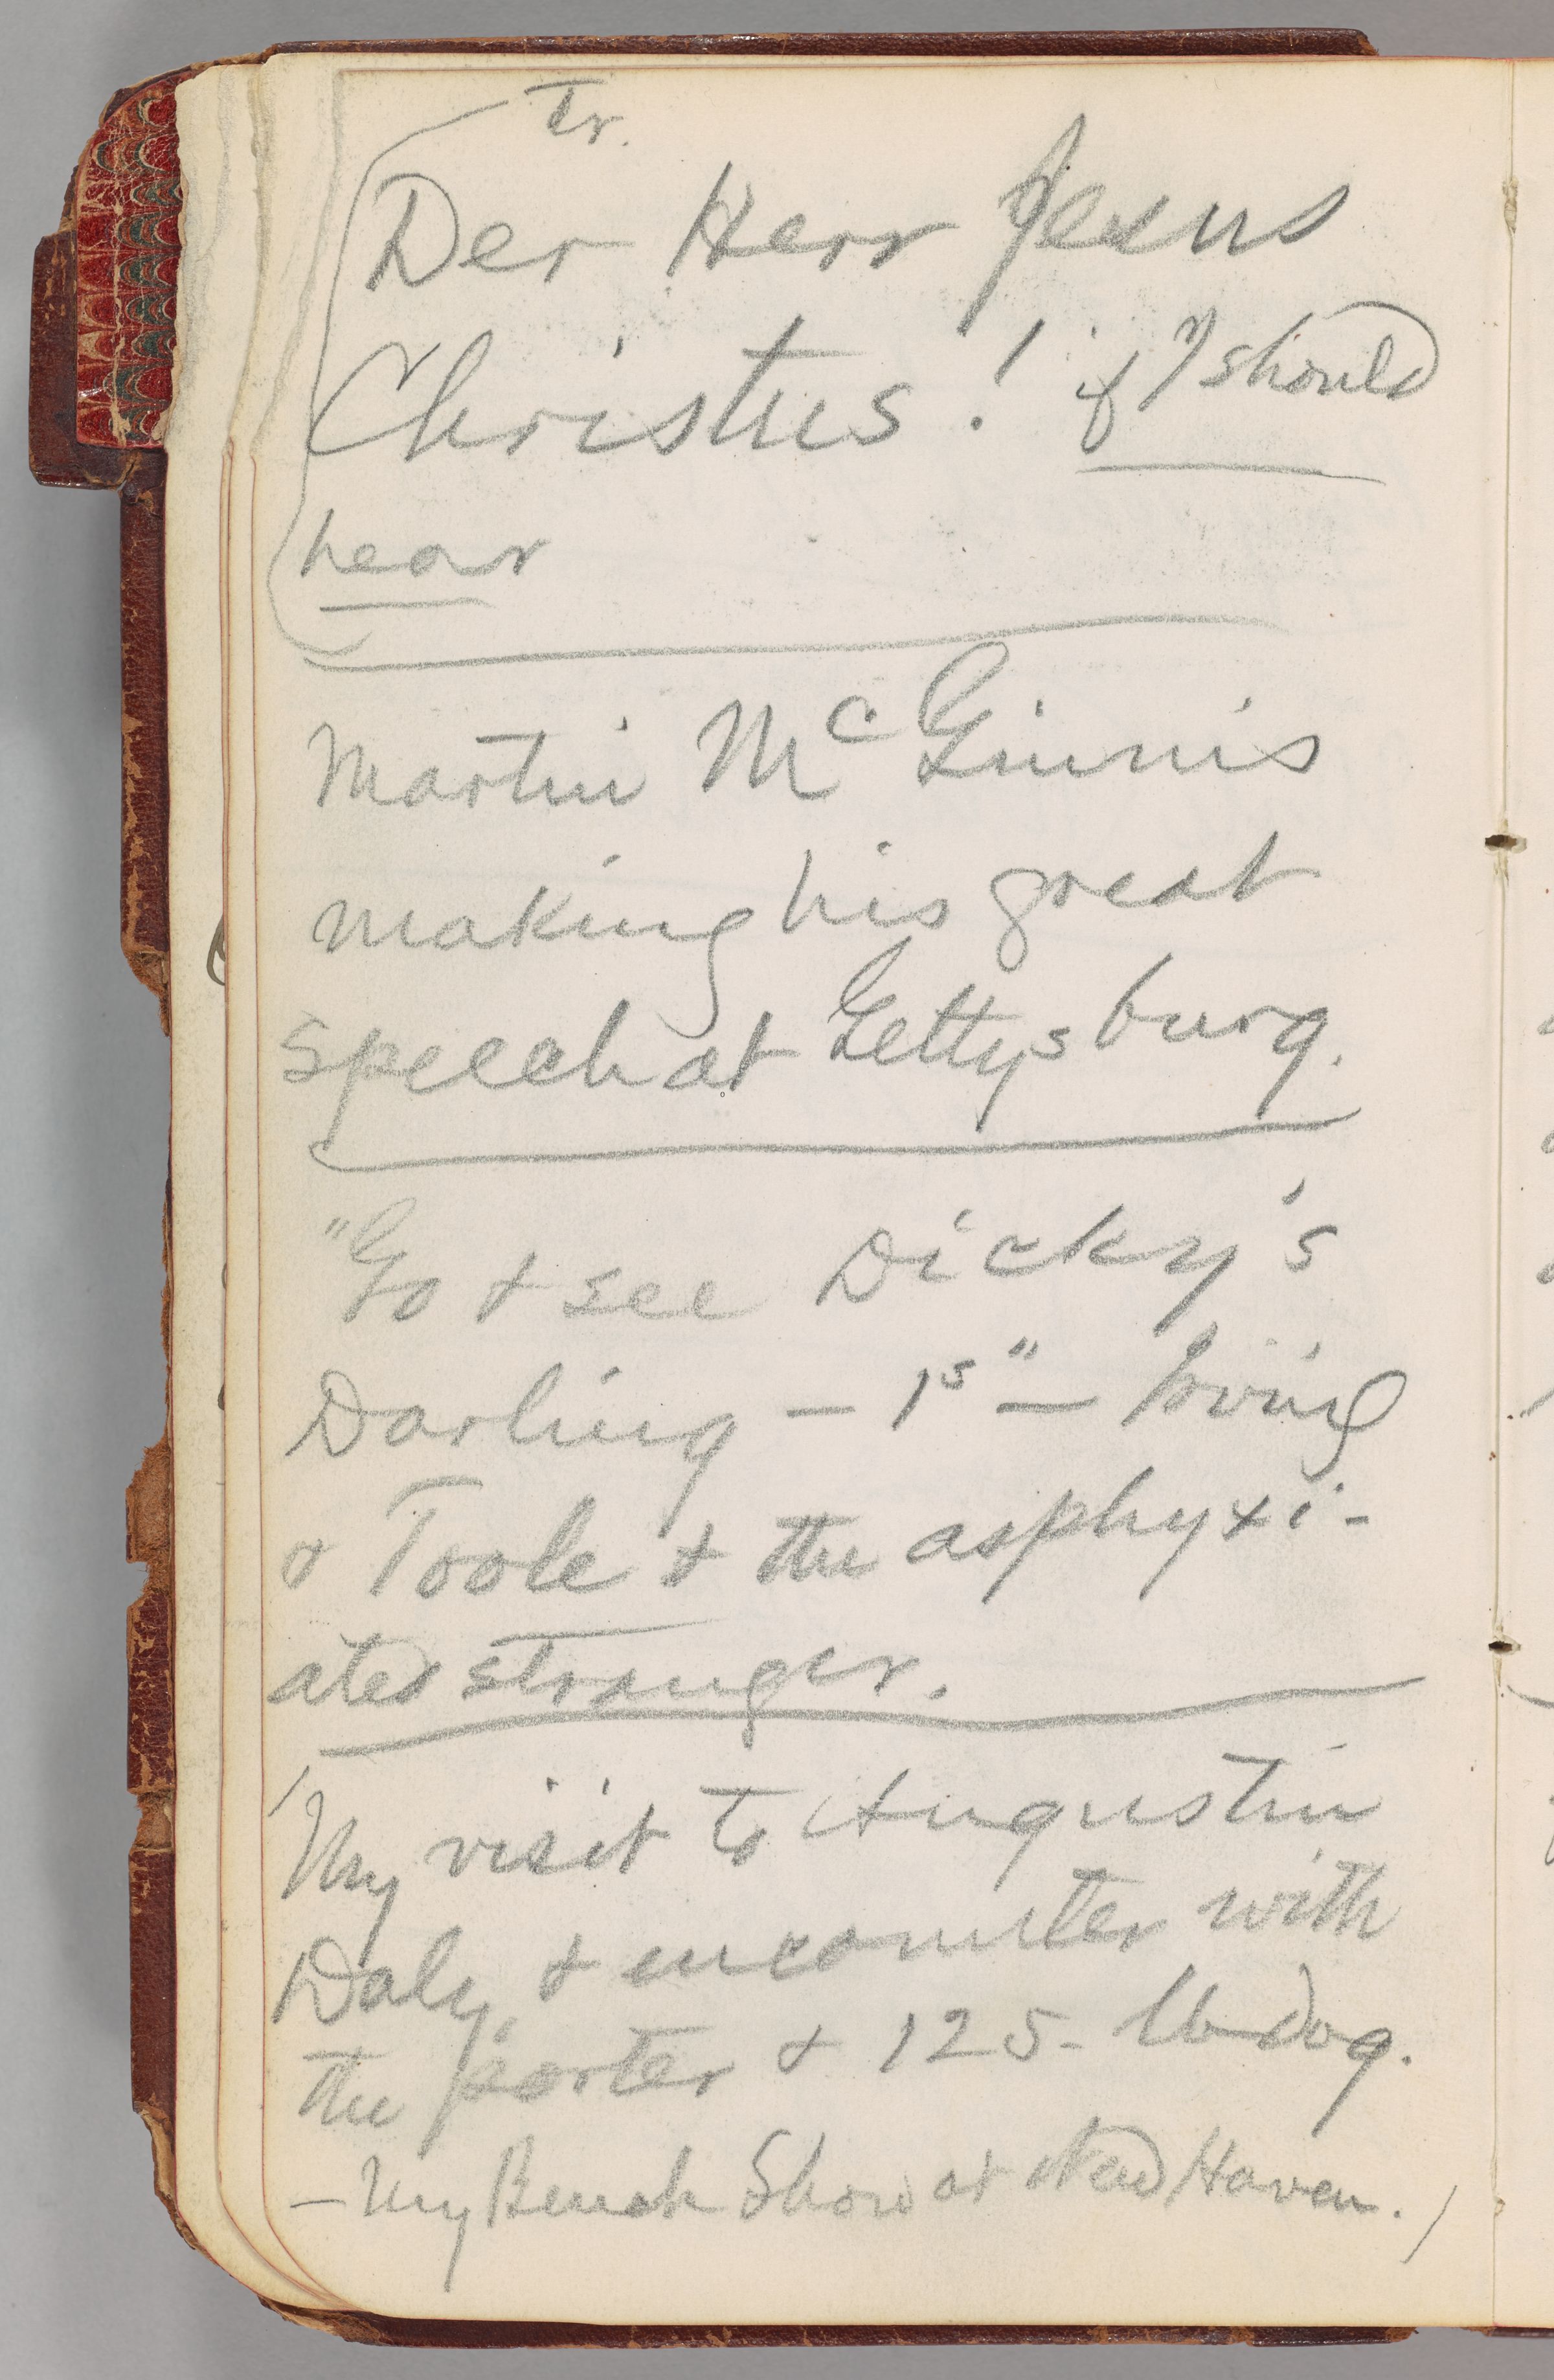 Tr.
Der Herr Jesus
Christus! if I should
hear
Martin McGinnis
making his great
speech at Gettysburg.
"Go & see Dicky's
Darling – 1s" – Irving
& Toole & the asphyxi-
ated stranger.
My visit to Augustin
Daly, & encounter with
the porter & 125-lb dog.
– My Bench Show at New Haven.